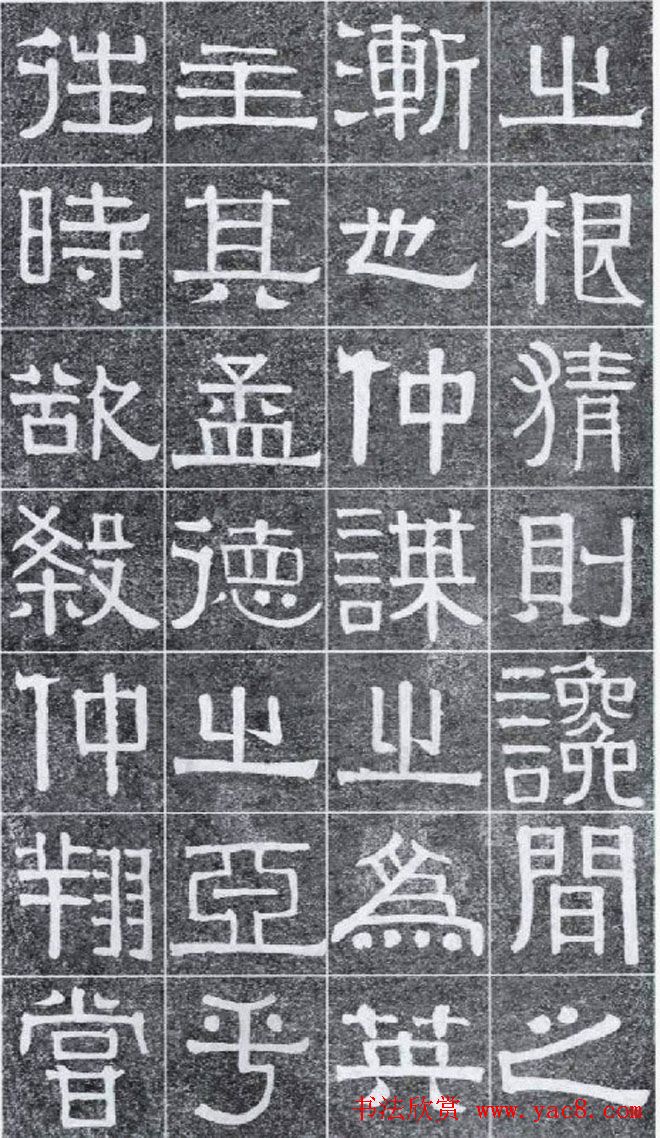 之根猜則讒間之
漸也仲謀之為英
主其孟德之亞乎
往時欲殺仲翔嘗
书法欣赏 www.yac8.com